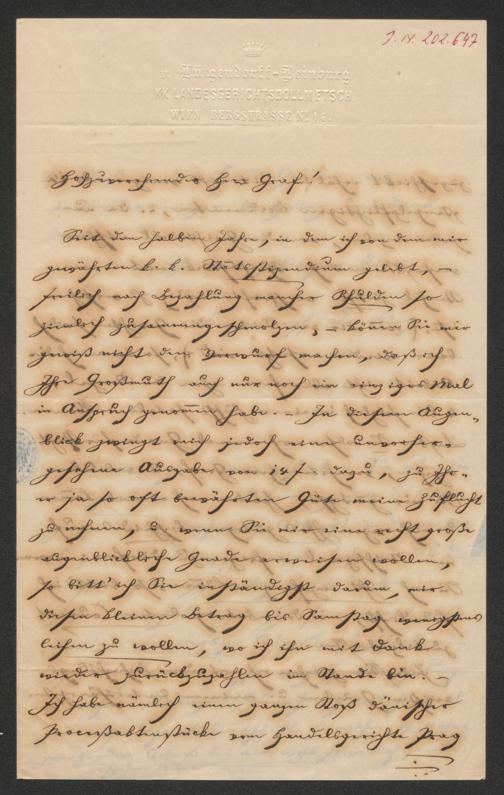 J. N. 202.647
v. Lütgendorff-Leinburg
KK LANDESGERICHTSDOLLMETSCH
WIEN BERGSTRASSE No 16.
Hochzuverehrender Herr Graf!
Seit dem halben Jahre, in dem ich von dem mir
gewährten k. k. Statsstipendium gelebt, –
freilich nach Bezahlung mancher Schulden so
ziemlich zusammengeschmolzen, – können Sie mir
gewiß nicht den Vorwurf machen, daß ich
Ihre Großmuth auch nur noch ein einziges Mal
in Anspruch genommen habe. – In diesem Augen-
blick zwingt mich jedoch eine unvorher-
gesehene Ausgabe von dazu, zu Ih-
rer ja so oft bewährten Güte meine Zuflucht
zu nehmen, u. wenn Sie mir eine recht große
augenblickliche Gnade erweisen wollen,
so bitt' ich Sie inständigst darum, mir
diesen kleinen Betrag bis Samstag wenigstens
leihen zu wollen, wo ich ihn mit Dank
wieder zurückzuzahlen im Stande bin. –
Ich habe nämlich einen ganzen Stoß dänischer
Proceßaktenstücke vom Handelsgerichte Prag